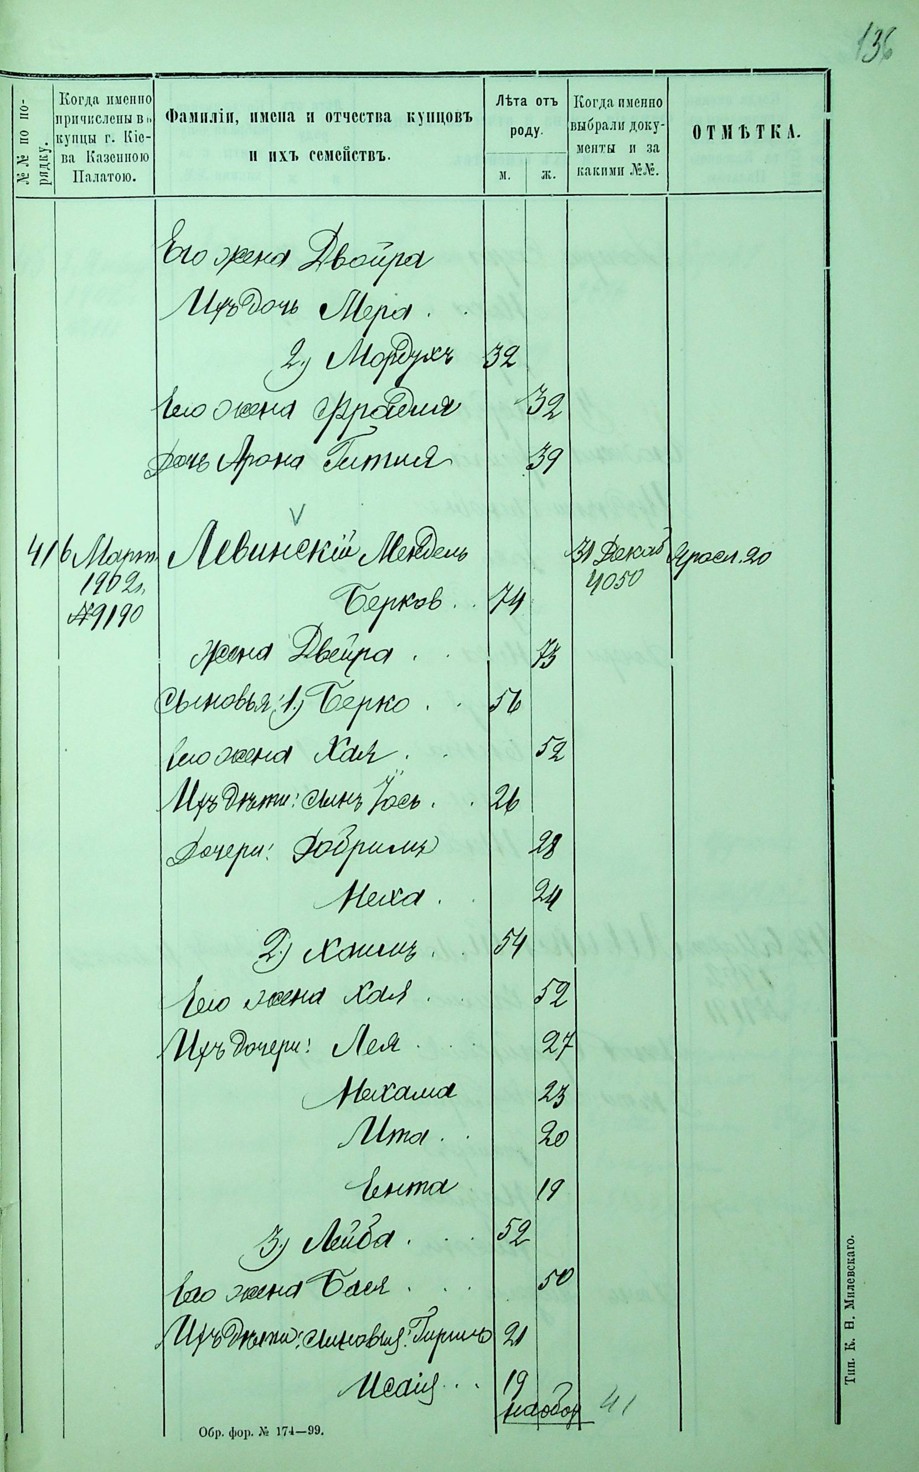 136
№№ по по-
рядку.
Когда именно
причислены въ
купцы г. Кіе-
ва Казенною
Палатою.
Фамиліи, имена и отчества купцовъ
и ихъ семействъ.
Лѣта отъ
роду.
м. ж.
Когда именно
выбрали доку-
менты и за
какими №№.
ОТМѢТКА.
Его жена Двойра
Ихъ дочь Мера . .
2.) Мордухъ 32
Его жена Фрадля 32
Дочь Арона Гитля 39
V
41 6 Март. Левинскій Мендель 31 Декаб Яросл. 20
1902 г. 4050
№9190 Берков. . 74
жена Двейра . . 73
Сыновья: 1.) Берко . . 56
Его жена Хая . . 52
Ихъ дѣти: сынъ Іось . . 26
Дочери: Добришъ 28
Неха . . 24
2.) Хаимъ . . 54
Его жена Хая . . 52
Ихъ дочери: Лея . . . 27
Нехама 23
Ита . . 20
Ента 19
3.) Лейба . . . 52
Его жена Бася . . . 50
Ихъ дѣти: сыновья: Гиршъ 21
Исаія . . . 19
на обор 41
Обр. фор. № 174—99.
Тип. К. Н. Милевскаго.